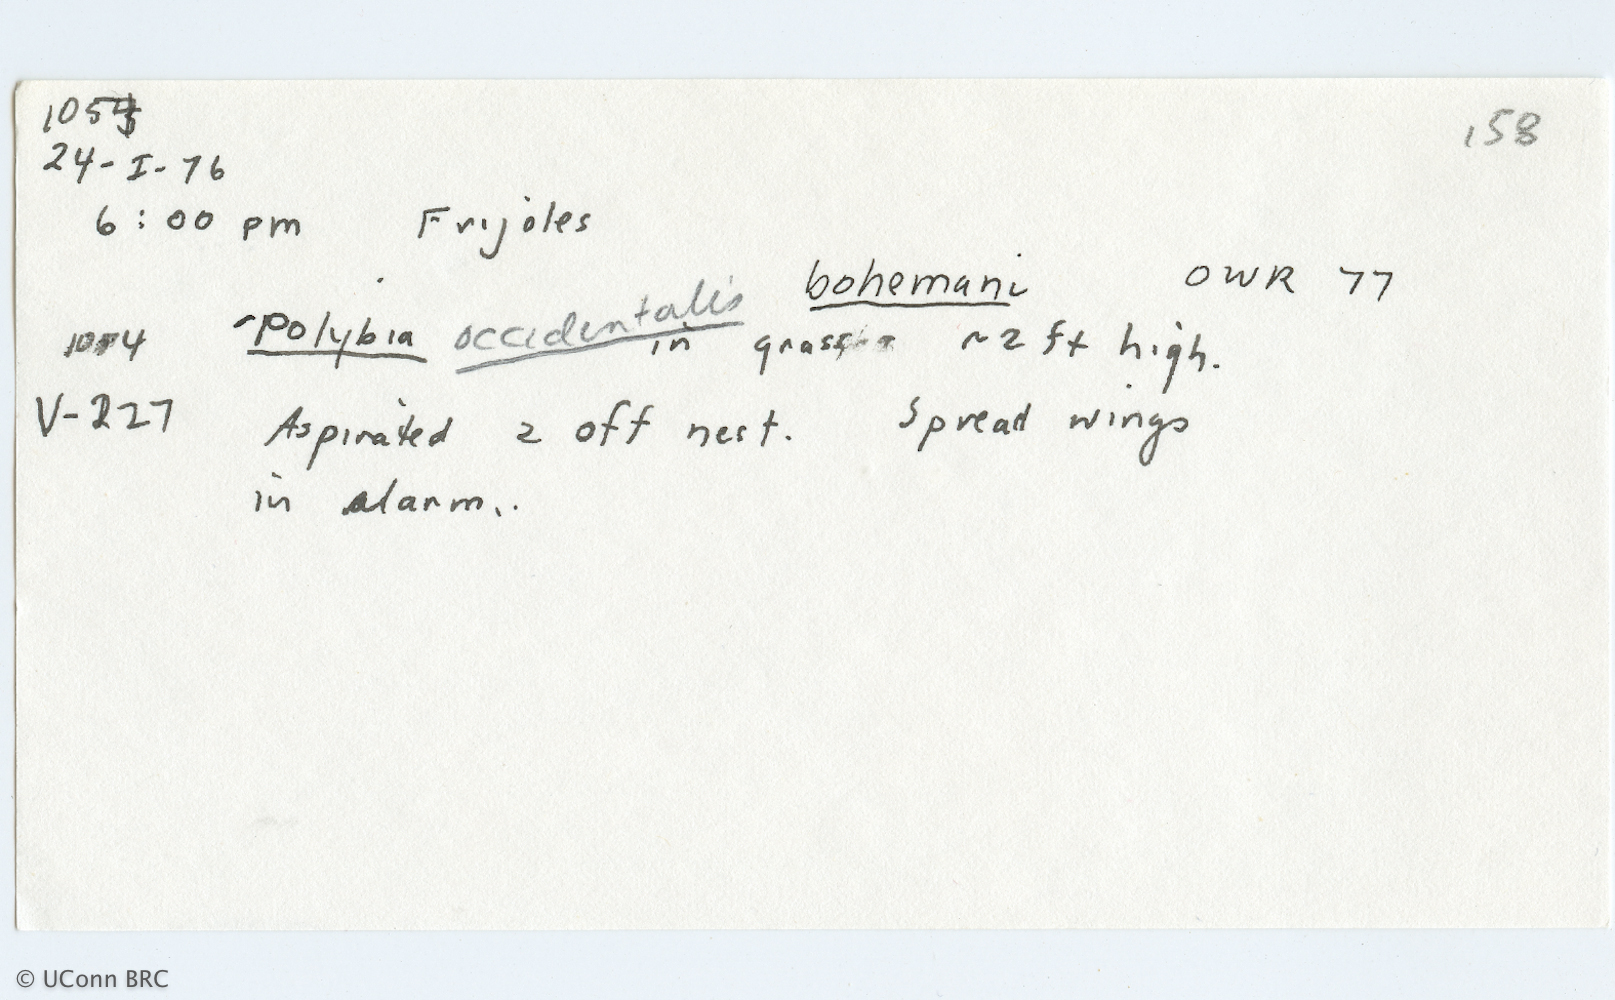 1054
158
24-I-76
6:00 pm Frijoles
bohemani OWR 77
1054 Polybia occidentalis in grass ~2 ft high.
V-227 Aspirated 2 off nest. Spread wings
in alarm.
© UConn BRC